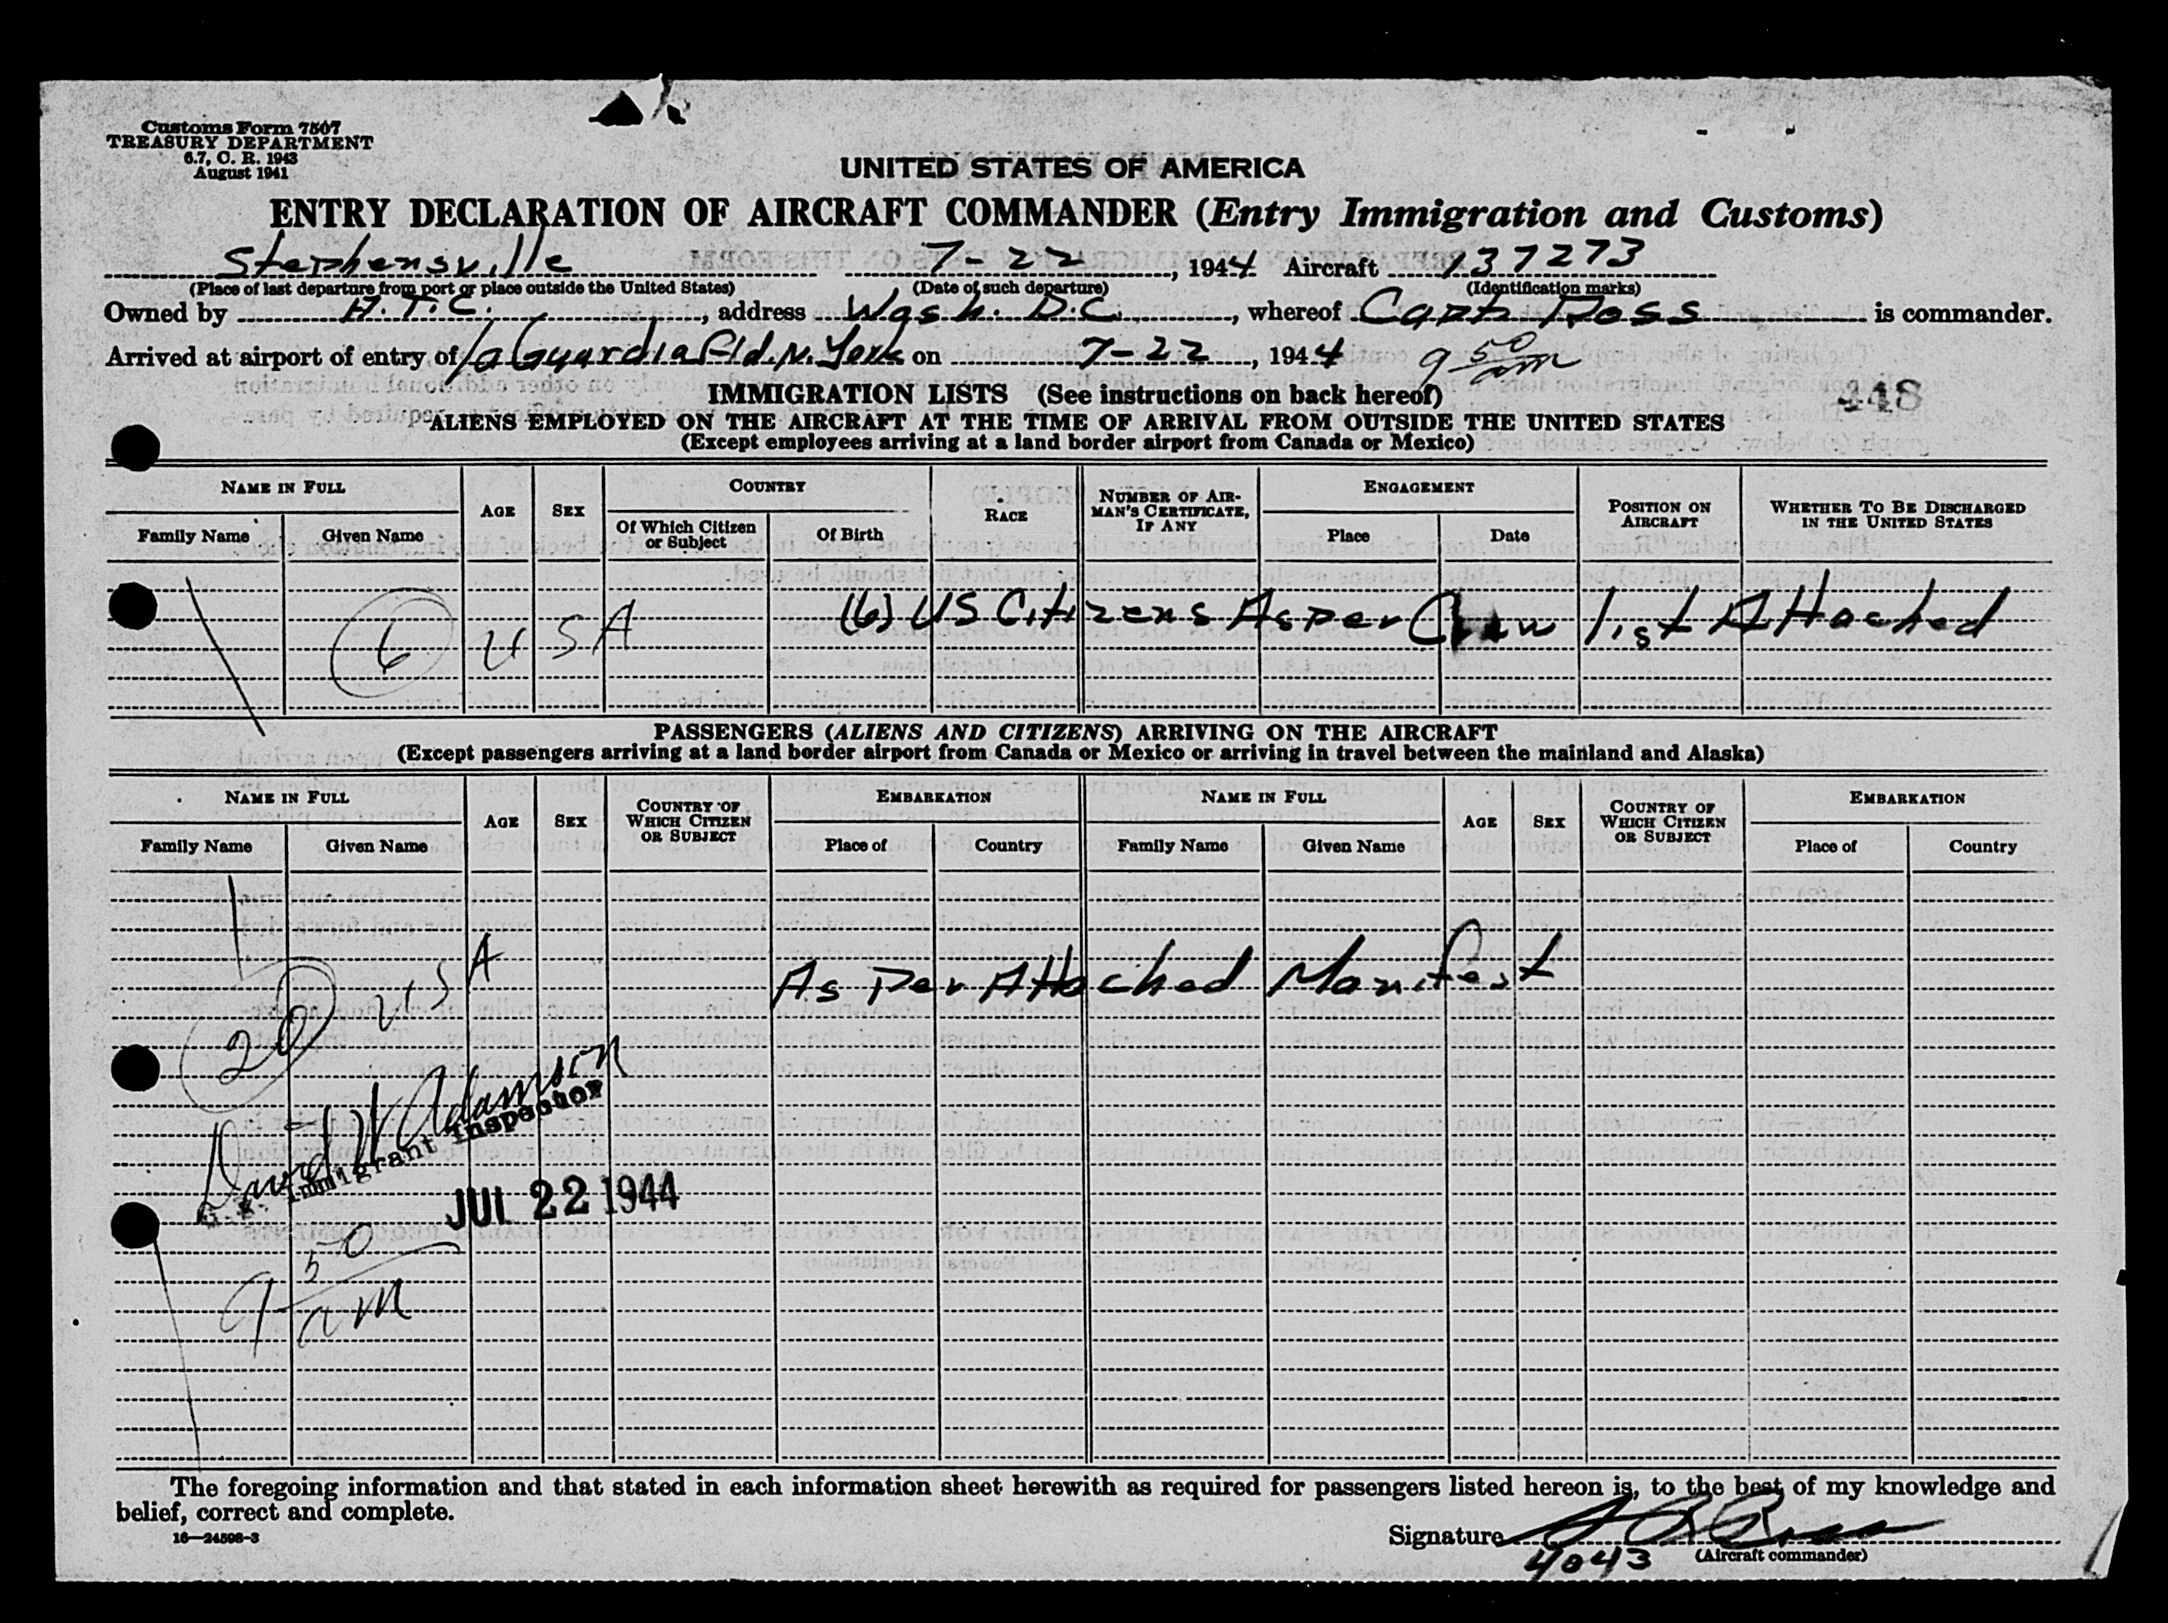 Customs Form 7507
TREASURY DEPARTMENT
6.7, C. R. 1943
August 1941
UNITED STATES OF AMERICA
ENTRY DECLARATION OF AIRCRAFT COMMANDER (Entry Immigration and Customs)
Stephensville 7-22, 1944 Aircraft 137273
(Place of last departure from port or place outside the United States) (Date of such departure) (Identification marks)
Owned by A.T.C., address Wash. D.C., whereof Capt Ross is commander.
Arrived at airport of entry of la Guardia Fld. N. York on 7-22, 1944 9 50 am
IMMIGRATION LISTS (See instructions on back hereof)
448
ALIENS EMPLOYED ON THE AIRCRAFT AT THE TIME OF ARRIVAL FROM OUTSIDE THE UNITED STATES
(Except employees arriving at a land border airport from Canada or Mexico)
NAME IN FULL AGE SEX COUNTRY RACE NUMBER OF AIRMAN'S CERTIFICATE, IF ANY ENGAGEMENT POSITION ON AIRCRAFT WHETHER TO BE DISCHARGED IN THE UNITED STATES
Family Name Given Name Of Which Citizen or Subject Of Birth Place Date
6 USA (6) US Citizens As per Crew list Attached
PASSENGERS (ALIENS AND CITIZENS) ARRIVING ON THE AIRCRAFT
(Except passengers arriving at a land border airport from Canada or Mexico or arriving in travel between the mainland and Alaska)
NAME IN FULL AGE SEX COUNTRY OF WHICH CITIZEN OR SUBJECT EMBARKATION NAME IN FULL AGE SEX COUNTRY OF WHICH CITIZEN OR SUBJECT EMBARKATION
Family Name Given Name Place of Country Family Name Given Name Place of Country
20 USA As Per Attached Manifest
David W Adamson
Immigrant Inspector
JUL 22 1944
9 50 am
The foregoing information and that stated in each information sheet herewith as required for passengers listed hereon is, to the best of my knowledge and
belief, correct and complete.
16—24598-3
Signature
(Aircraft commander)
4043